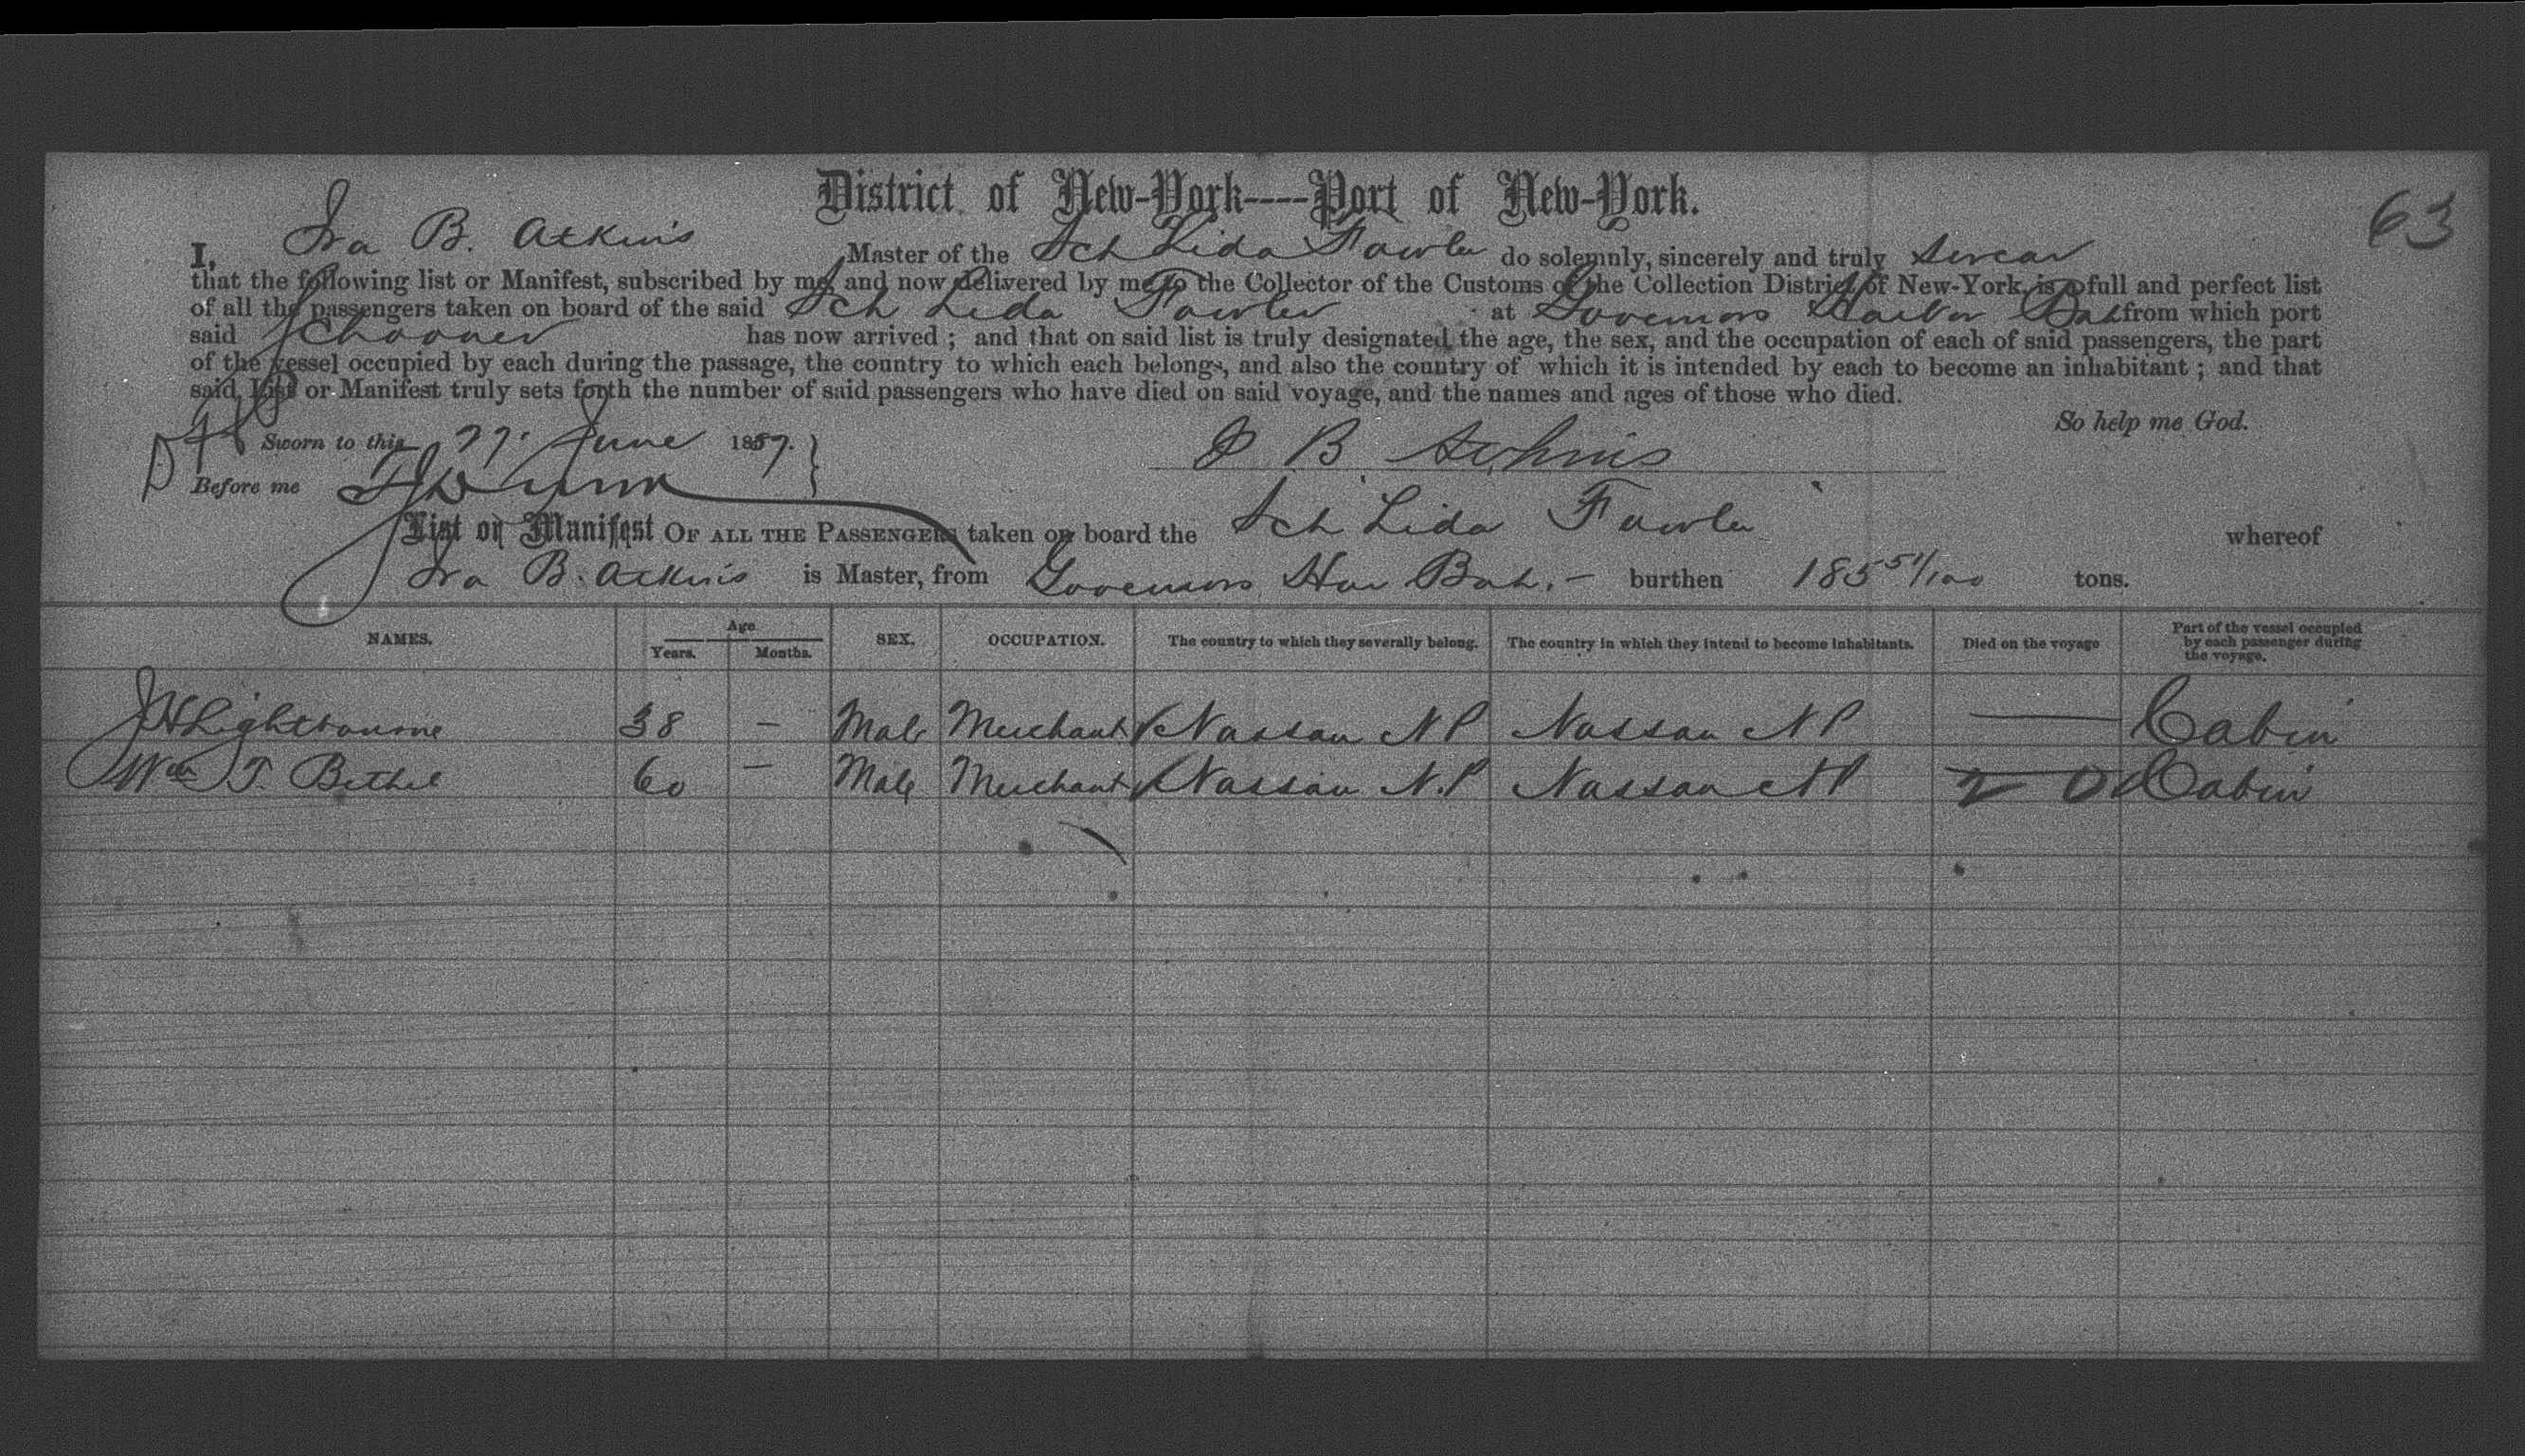 District of New-York----Port of New-York.
63
I, Ira B. Atkins Master of the Sch Lida Fowler do solemnly, sincerely and truly swear
that the following list or Manifest, subscribed by me, and now delivered by me to the Collector of the Customs of the Collection District of New-York, is a full and perfect list
of all the passengers taken on board of the said Sch Lida Fowler at Governors Harbor Bah from which port
said Schooner has now arrived ; and that on said list is truly designated the age, the sex, and the occupation of each of said passengers, the part
of the vessel occupied by each during the passage, the country to which each belongs, and also the country of which it is intended by each to become an inhabitant ; and that
said List or Manifest truly sets forth the number of said passengers who have died on said voyage, and the names and ages of those who died.
So help me God.
Sworn to this June 18
I B Atkins
Before me
List or Manifest OF ALL THE PASSENGERS taken on board the Sch Lida Fowler whereof
Ira B. Atkins is Master, from Governors Har Bah. - burthen 185 51/100 tons.
NAMES. Age Years. Months. SEX. OCCUPATION. The country to which they severally belong. The country in which they intend to become inhabitants. Died on the voyage Part of the vessel occupied by each passenger during the voyage.
JH Lightbourne 38 — Male Merchant Nassau N P Nassau N P — Cabin
Wm T. Bethel 60 — Male Merchant Nassau N.P Nassau N P — Cabin